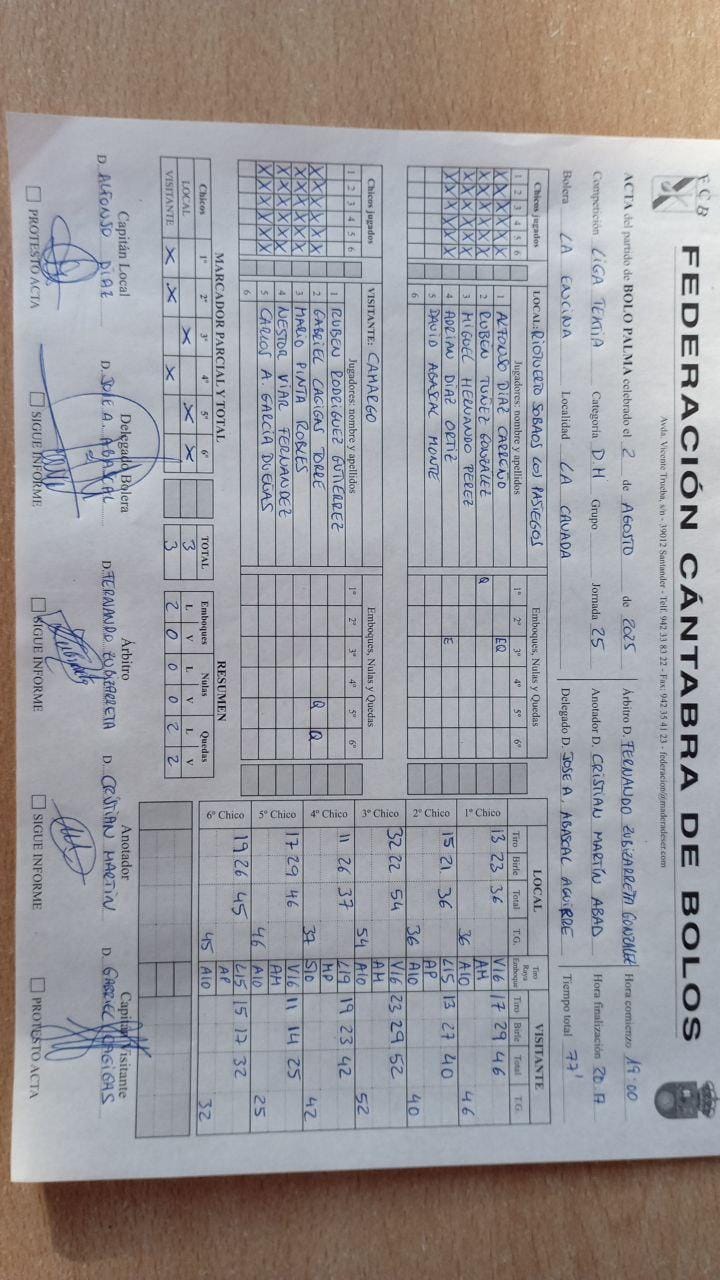 FCB
FEDERACIÓN CÁNTABRA DE BOLOS
Avda. Vicente Trueba, s/n - 39012 Santander - Telf. 942 33 83 22 - Fax: 942 35 41 23 - federacion@maderadeser.com
ACTA del partido de BOLO PALMA celebrado el 2 de AGOSTO de 2025
Competición LIGA TENIA Categoría D.H Grupo Jornada 25
Bolera LA ENCINA Localidad LA CAVADA
Árbitro D. FERNANDO ZUBIZARRETA GONZALEZ Hora comienzo 19:00
Anotador D. CRISTIAN MARTÍN ABAD Hora finalización 20.17
Delegado D. JOSE A. ABASCAL AGUIRRE Tiempo total 77'
Chicos jugados LOCAL: RIOTUERTO SOBAOS LOS PASIEGOS Emboques, Nulas y Quedas
1 2 3 4 5 6 Jugadores: nombre y apellidos 1º 2º 3º 4º 5º 6º
X X X X X X 1 ALFONSO DIAZ CARREÑO EQ
X X X X X X 2 RUBEN TUÑEZ GONZALEZ Q
X X X X X X 3 MIGUEL HERNANDO PEREZ
X X X X X X 4 ADRIAN DIAZ ORTIZ E
5 DAVID ABASCAL MONTE
6
Chicos jugados VISITANTE: CAMARGO Emboques, Nulas y Quedas
1 2 3 4 5 6 Jugadores: nombre y apellidos 1º 2º 3º 4º 5º 6º
1 RUBEN RODRIGUEZ GUTIERREZ
X X X X X X 2 GABRIEL CAGIGAS TORRE Q Q
X X X X X X 3 MARIO PINTA ROBLES
X X X X X X 4 NESTOR VIAR FERNANDEZ
X X X X X X 5 CARLOS A. GARCÍA DUEÑAS
6
LOCAL VISITANTE
Tiro Birle Total T.G. Tiro Raya Emboque Tiro Birle Total T.G.
1º Chico 13 23 36 V16 17 29 46
AM
36 A10 46
2º Chico 15 21 36 L15 13 27 40
AP
36 A10 40
3º Chico 32 22 54 V16 23 29 52
AM
54 A10 52
4º Chico 11 26 37 L19 19 23 42
MP
37 S10 42
5º Chico 17 29 46 V16 11 14 25
AM
46 A10 25
6º Chico 19 26 45 L15 15 17 32
AP
45 A10 32
MARCADOR PARCIAL Y TOTAL
Chicos 1º 2º 3º 4º 5º 6º TOTAL
LOCAL X X X 3
VISITANTE X X X 3
RESUMEN
Emboques Nulas Quedas
L V L V L V
2 0 0 0 2 2
Capitán Local Delegado Bolera Árbitro Anotador Capitán Visitante
D. ALFONSO DIAZ D. JOSE A. ABASCAL D. FERNANDO ZUBIZARRETA D. CRISTIAN MARTIN D. GABRIEL CAGIGAS
PROTESTO ACTA SIGUE INFORME SIGUE INFORME SIGUE INFORME PROTESTO ACTA